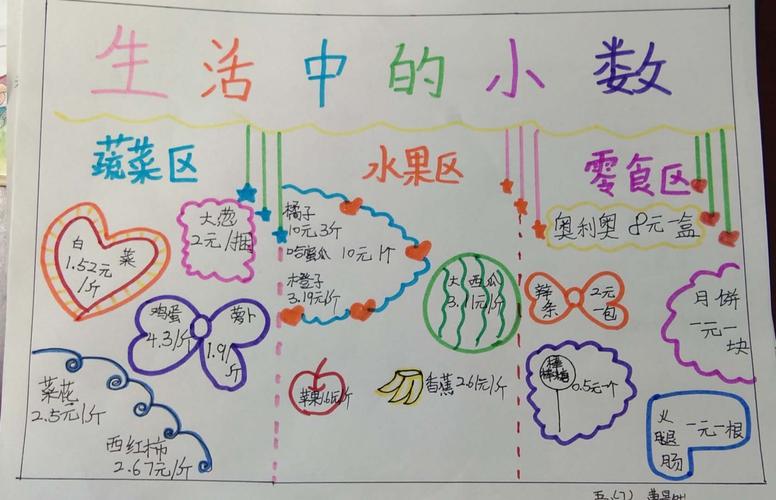 生活中的小数
蔬菜区
白菜
1.52元
/斤
大葱
2元/捆
鸡蛋
4.3/斤
萝卜
1.9/
斤
菜花
2.5元/斤
西红柿
2.67元/斤
水果区
橘子
10元3斤
哈蜜瓜 10元1个
橙子
3.19元/斤
大西瓜
元/斤
苹果
香蕉2.61元/斤
零食区
奥利奥 8元一盒
辣条
2元
一包
月饼
一元一
块
棒棒糖
0.5元一个
火腿肠
一元一根